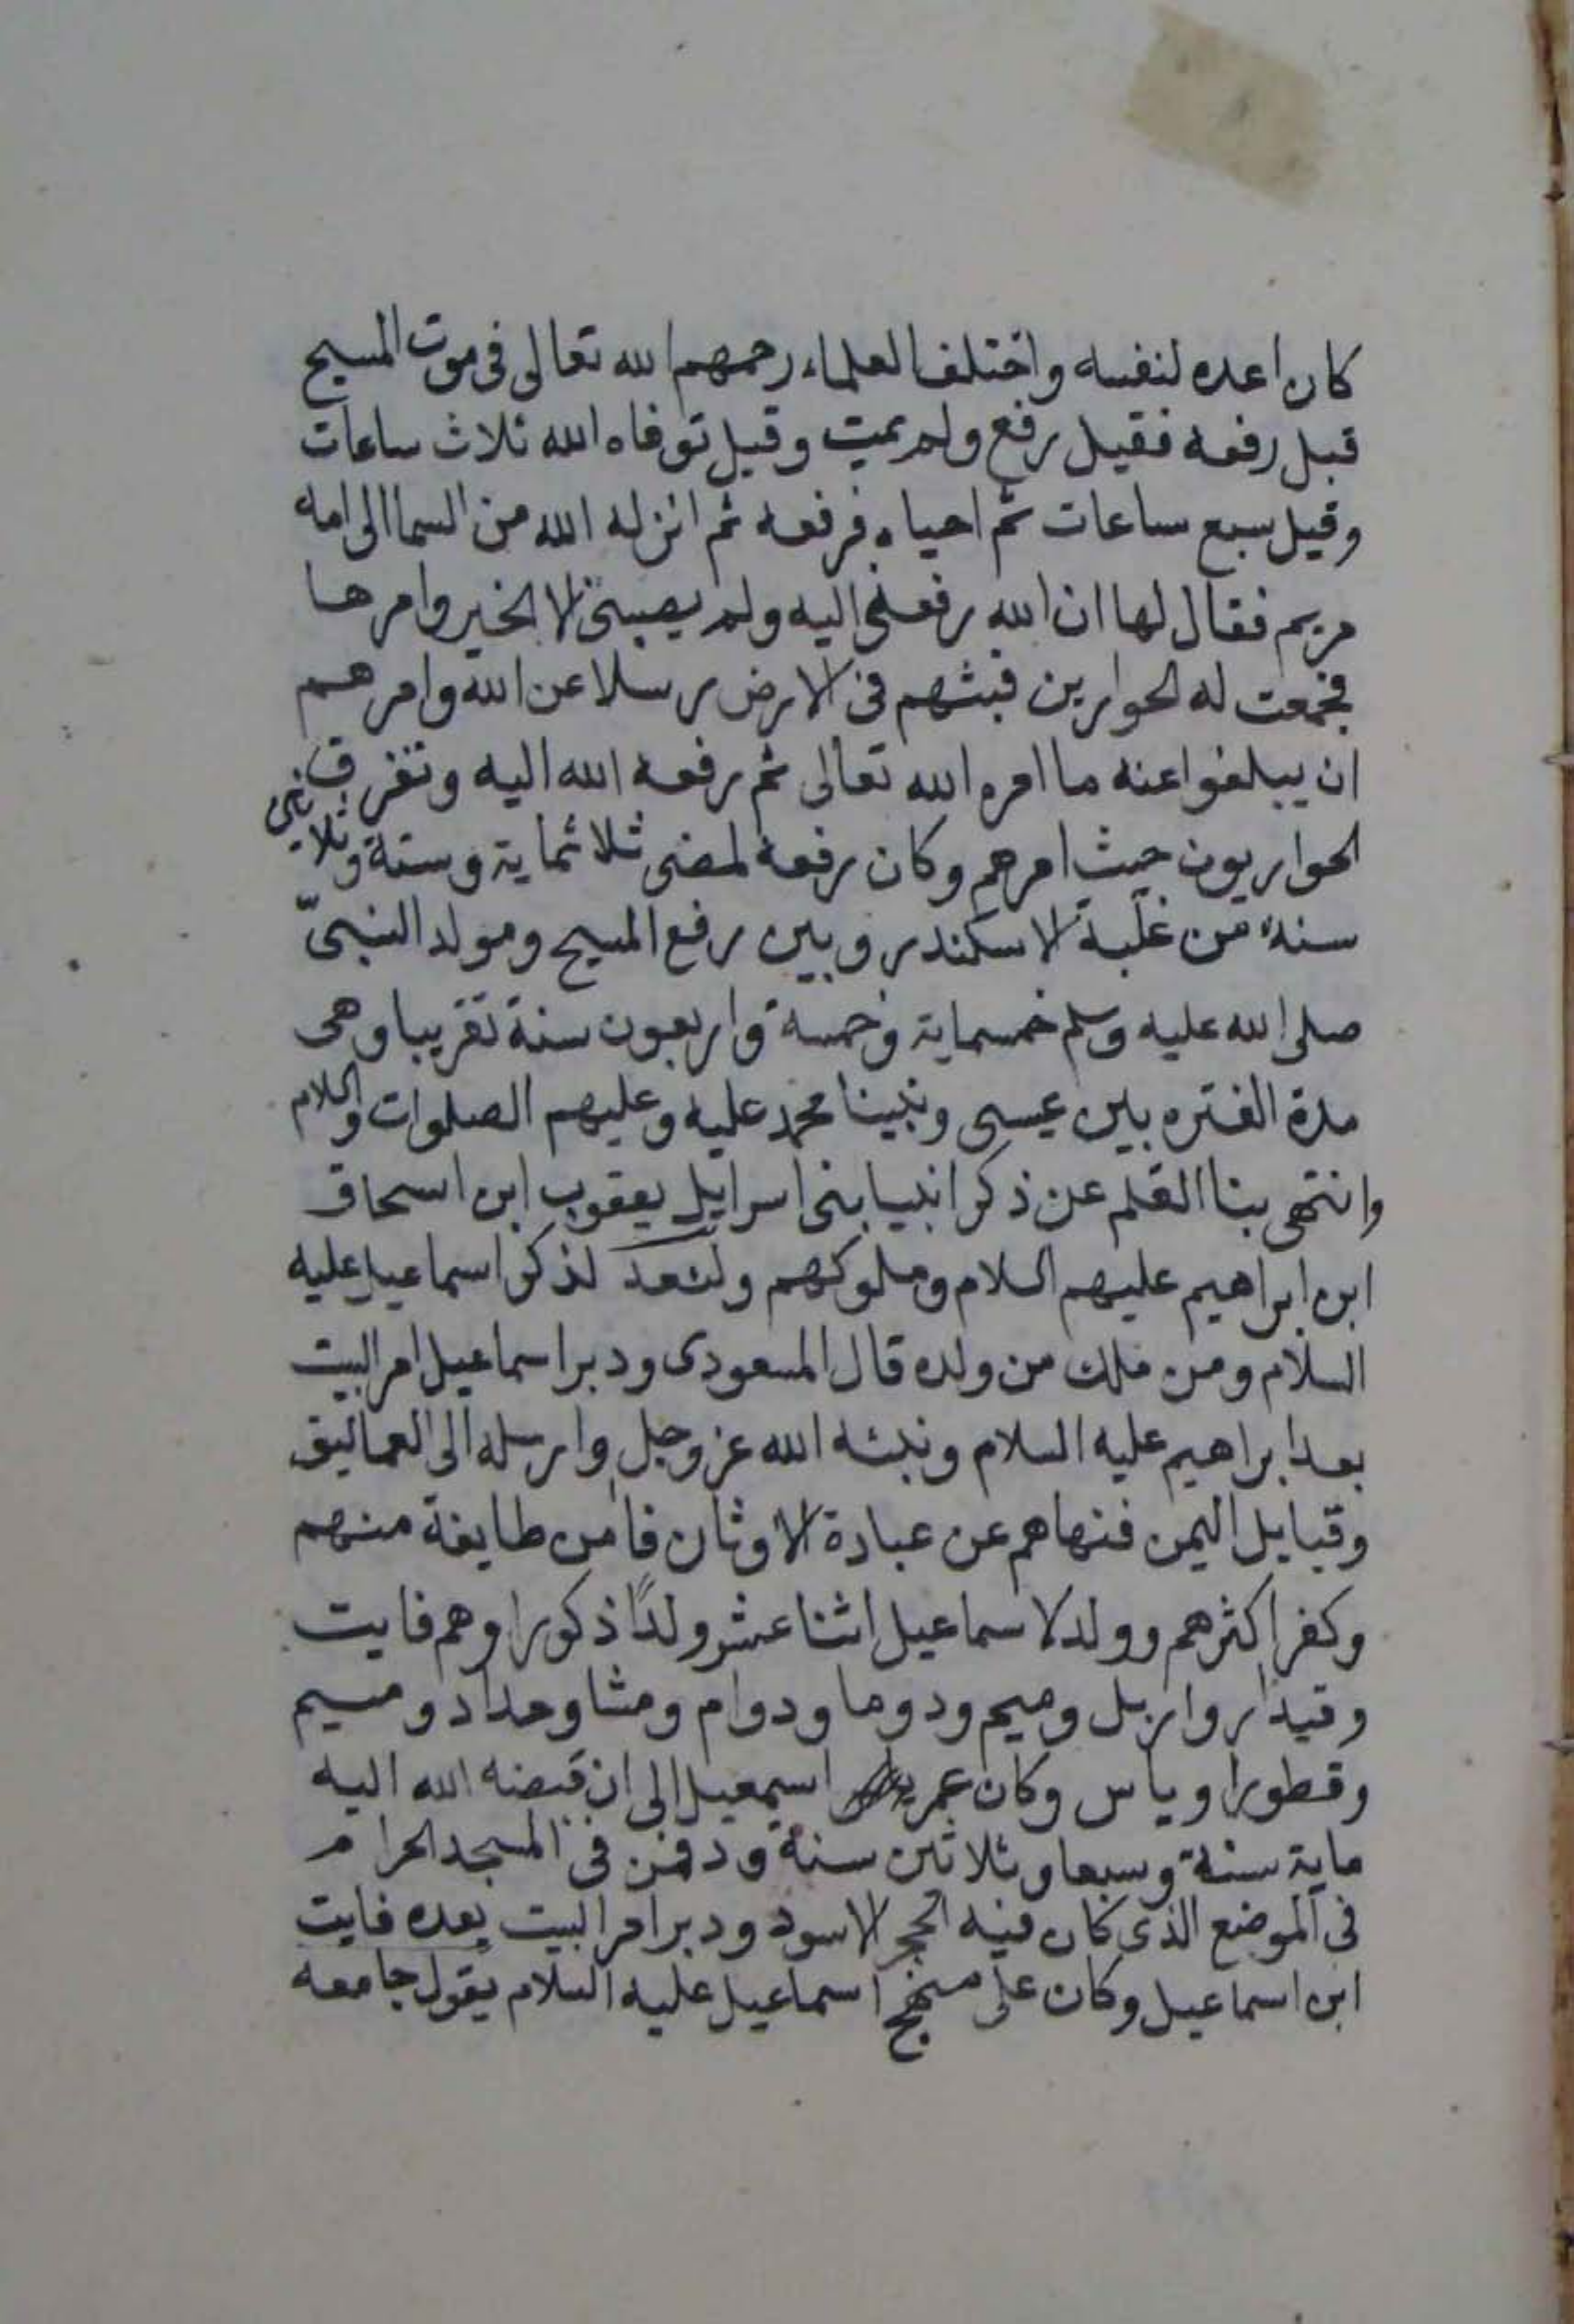 كان اعده لنفسه واختلف العلماء رحمهم الله تعالى فى موت المسيح
قبل رفعه فقيل رفع ولم يمت وقيل توفاه الله ثلاث ساعات
وقيل سبع ساعات ثم احياه فرفعه ثم انزله الله من السما الى امه
مريم فقال لها ان الله رفعنى اليه ولم يصبنى الا الخير وامرها
فجمعت له الحوارين فبثهم فى الارض رسلا عن الله وامرهم
ان يبلغوا عنه ما امره الله تعالى ثم رفعه الله اليه وتفرق
الحواريون حيث امرهم وكان رفعه لمضى ثلاثماية وستة وثلاثين
سنة من غلبة الاسكندر وبين رفع المسيح ومولد النبىّ
صلى الله عليه وسلم خمسماية وخمسة واربعون سنة تقريبا وهى
مدة الفتره بين عيسى ونبينا محمد عليه وعليهم الصلوات والسلام
وانتهى بنا القلم عن ذكر انبيا بنى اسرايل يعقوب ابن اسحاق
ابن ابراهيم عليهم السلام وملوكهم ولنعد لذكر اسماعيل عليه
السلام ومن ملك من ولده قال المسعودى ودبر اسماعيل امر البيت
بعد ابراهيم عليه السلام ونبئه الله عز وجل وارسله الى العماليق
وقبايل اليمن فنهاهم عن عبادة الاوثان فامن طايفة منهم
وكفر اكثرهم وولد لاسماعيل اثنا عشر ولدًا ذكورا وهم فايت
وقيدار واربل وميم ودوما ودوام ومشا وحداد ومسيم
وقطورا وياس وكان عمر اسمعيل الى ان قبضه الله اليه
ماية سنة وسبعا وثلاثين سنة ودفن فى المسجد الحرام
فى الموضع الذى كان فيه الحجر الاسود ودبر امر البيت بعده فايت
ابن اسماعيل وكان على منهج اسماعيل عليه السلام يقول جامعه